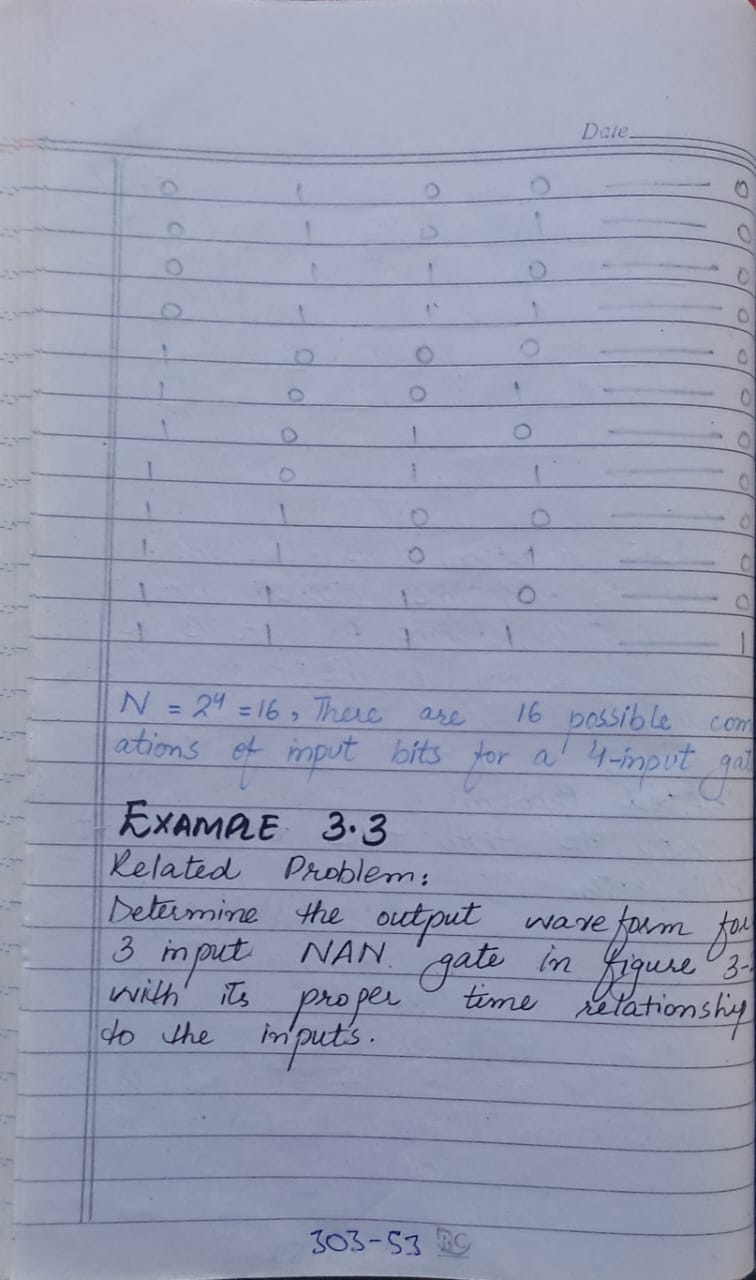 Date
0 1 0 0 — 0
0 1 0 1 — 0
0 1 1 0 — 0
0 1 1 1 — 0
1 0 0 0 — 0
1 0 0 1 — 0
1 0 1 0 — 0
1 0 1 1 — 0
1 1 0 0 — 0
1 1 0 1 — 0
1 1 1 0 — 0
1 1 1 1 — 1
N = 2⁴ = 16, There are 16 possible com
ations of input bits for a 4-input gat
EXAMPLE 3.3
Related Problem:
Determine the output waveform for
3 input NAN gate in figure 3-
with its proper time relationship
to the inputs.
303-53 RC